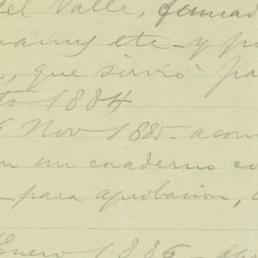 del Valle, fumad
etc - y po
, que sirvió pa
to 1884
6 Nov 1885 - acom
on un cuaderno co
- para aprobacion, 
Enero 1886 - ap